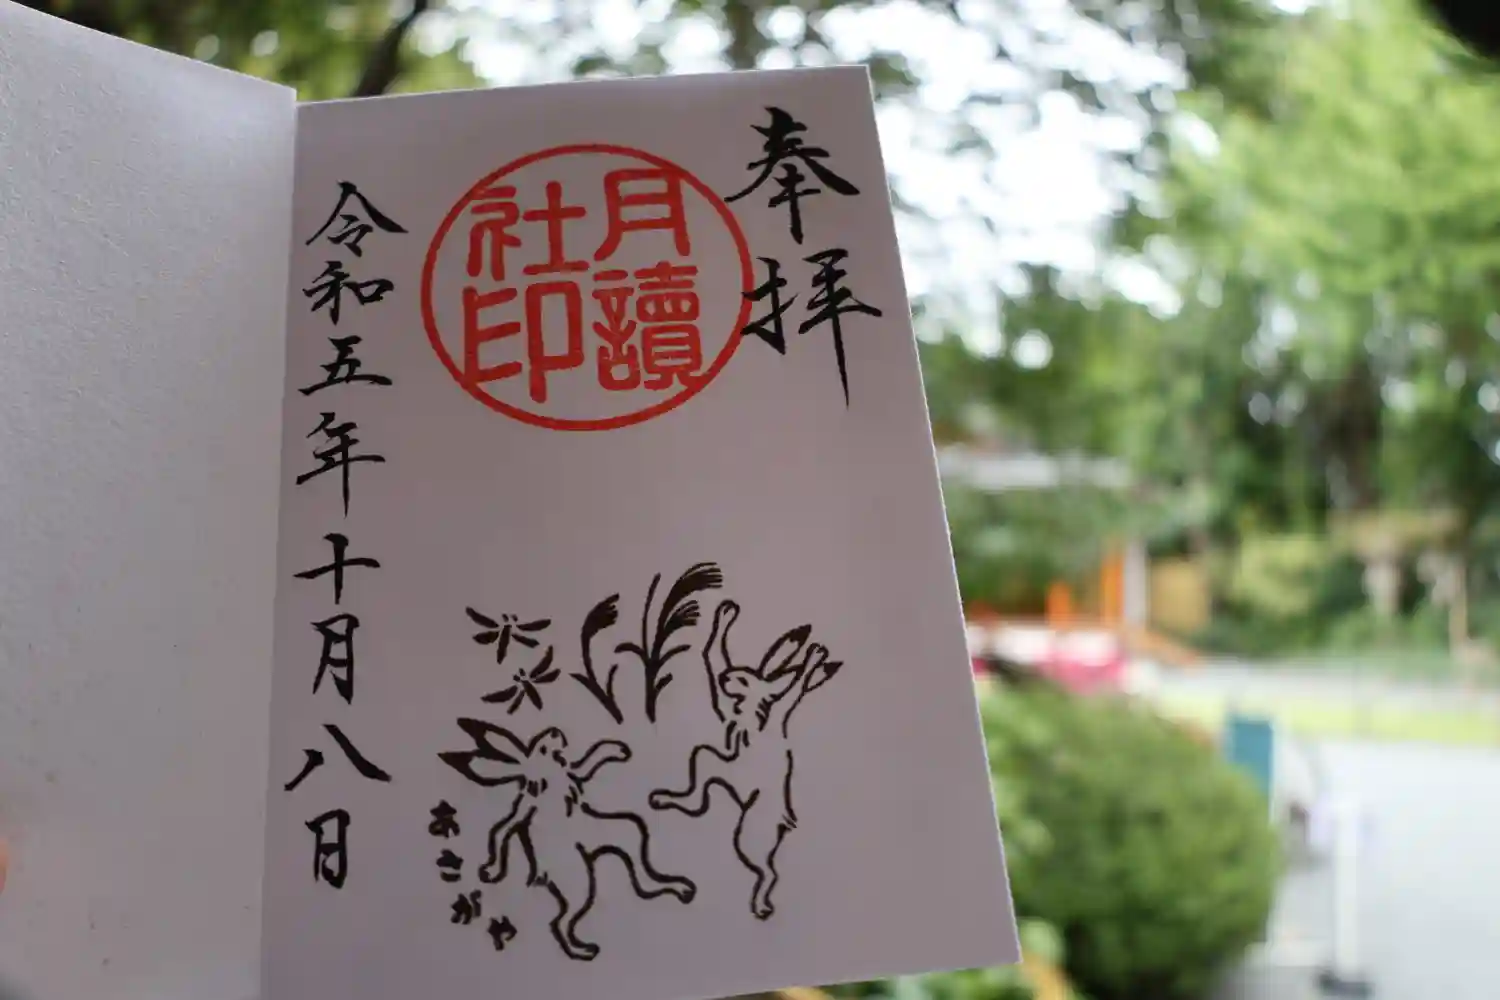 奉拝
月讀
社印
令和五年十月八日
あさがや